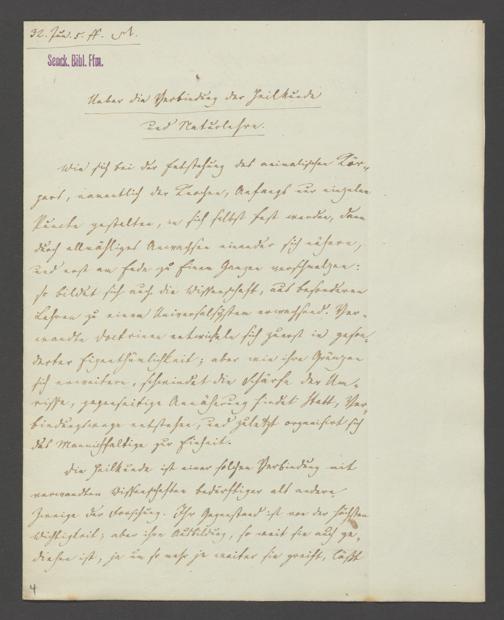 Senck. Bibl. Ffm.
Ueber die Verbindung der Heilkunde
und Naturlehre.
Wie sich bei der Entstehung des animalischen Kör-
pers, namentlich der Knochen, Anfangs nur einzelne
Puncte gestalten, in sich selbst fest werden, dann
durch allmähliges Anwachsen einander sich nähern,
und erst am Ende zu Einem Ganzen verschmelzen:
so bildet sich auch die Wissenschaft, aus besonderen
Lehren zu einem Universalsystem erwachsend. Ver-
wandte Doctrinen entwickeln sich zuerst in geson-
derter Eigenthümlichkeit; aber wie ihre Gränzen
sich erweitern, schwindet die Schärfe der Um-
risse, gegenseitige Annäherung findet Statt, Ver-
bindungswege entstehen, und zuletzt organisirt sich
das Mannichfaltige zur Einheit.
Die Heilkunde ist einer solchen Verbindung mit
verwandten Wissenschaften bedürftiger als andere
Zweige der Forschung. Ihr Gegenstand ist von der höchsten
Wichtigkeit; aber ihre Ausbildung, so weit sie auch ge-
diehen ist, ja um so mehr je weiter sie greift, läßt
4